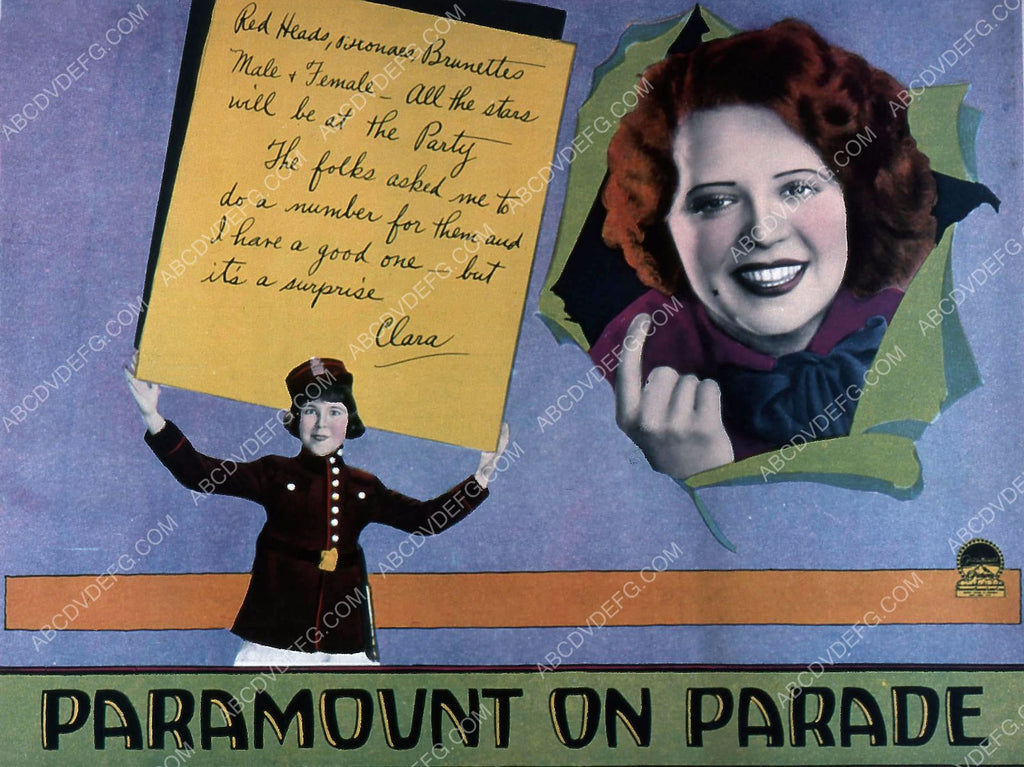 Red Heads, Blondes, Brunettes
Male + Female - All the stars
will be at the Party
The folks asked me to
do a number for them and
I have a good one - but
it's a surprise
Clara
PARAMOUNT ON PARADE
ABCDVDEFG.COM